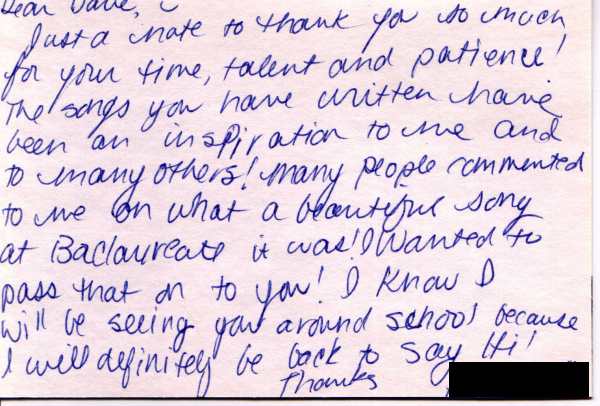 Dear Dave,
Just a note to thank you so much
for your time, talent and patience!
The songs you have written have
been an inspiration to me and
to many others! Many people commented
to me on what a beautiful song
at Baclaureate it was! I Wanted to
pass that on to you! I know I
will be seeing you around school because
I will definitely be back to say Hi!
Thanks